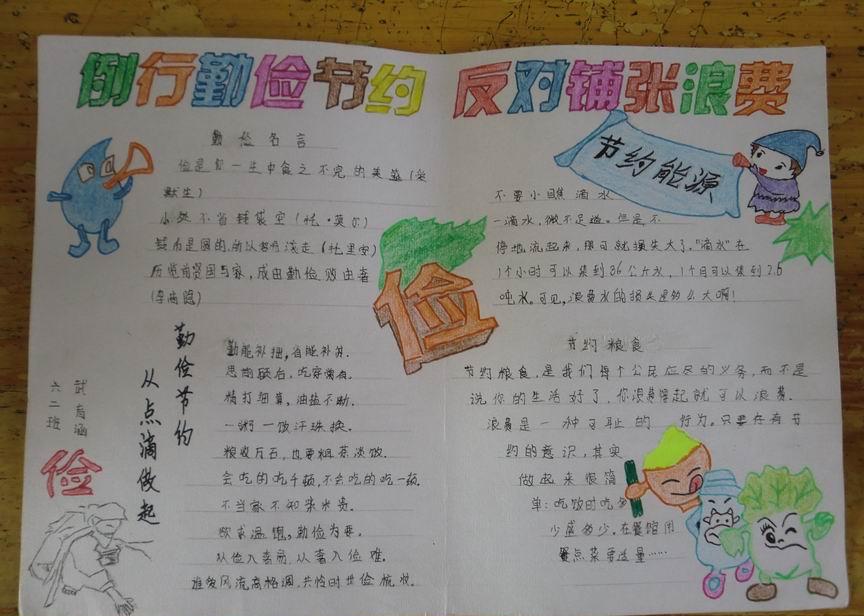 例行勤俭节约
反对铺张浪费
勤俭名言
俭是你一生中食之不完的美筵(爱
默生)
小处不省钱袋空(托·莫尔)
钱币是圆的,所以容易滚走(托里安)
历览前贤国与家,成由勤俭败由奢
(李商隐)
勤俭节约
从点滴做起
六二班
武
涵
俭
勤能补拙,省能补贫.
思前顾后,吃穿常有.
精打细算,油盐不断.
一粥一饭汗珠换.
粮收万石,也要粗茶淡饭.
会吃的吃千顿,不会吃的吃一顿.
不当家不知柴米贵.
欲求温饱,勤俭为要.
从俭入奢易,从奢入俭难.
谁爱风流高格调,共怜时世俭梳妆.
俭
节约能源
不要小瞧滴水
一滴水,微不足道。但是不
停地流起来,那可就损失大了。"滴水"在
1个小时可以集到3.6公斤水,1个月可以集到2.6
吨水。可见,浪费水的损失是多么大啊!
节约粮食
节约粮食,是我们每个公民应尽的义务,而不是
说你的生活好了,你浪费得起就可以浪费.
浪费是一种可耻的 行为。只要存有节
约的意识,其实
做起来很简
单:吃饭时吃多
少盛多少,在餐馆用
餐点菜要适量……